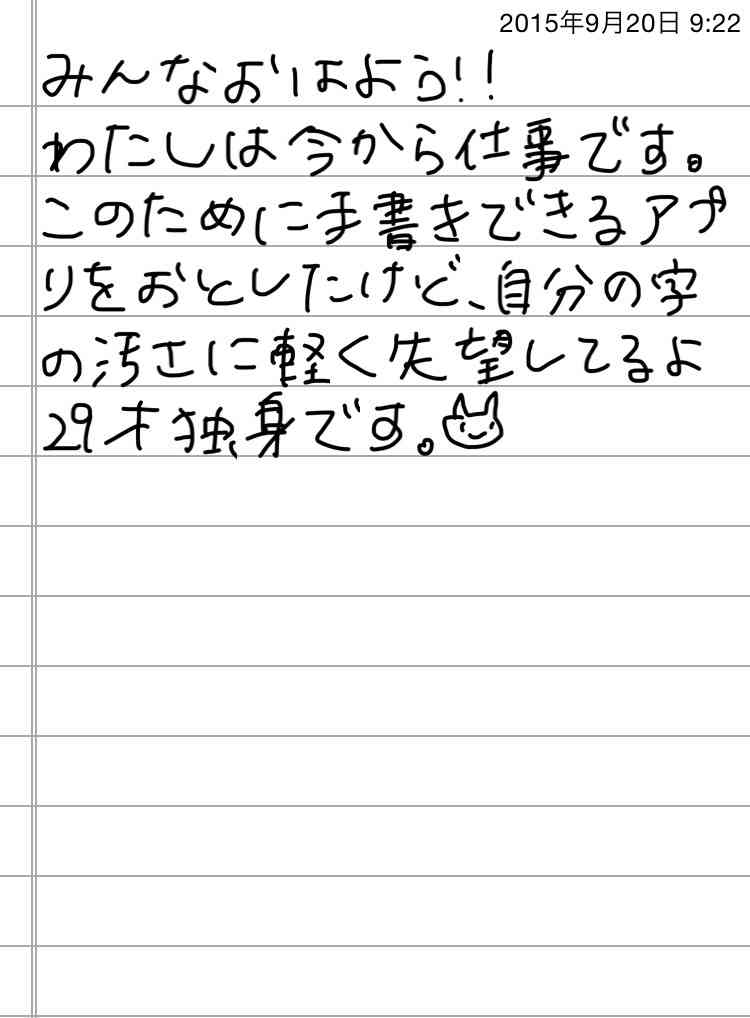 2015年9月20日 9:22
みんなおはよう!!
わたしは今から仕事です。
このために手書きできるアプ
リをおとしたけど、自分の字
の汚さに軽く失望してるよ
29才独身です。